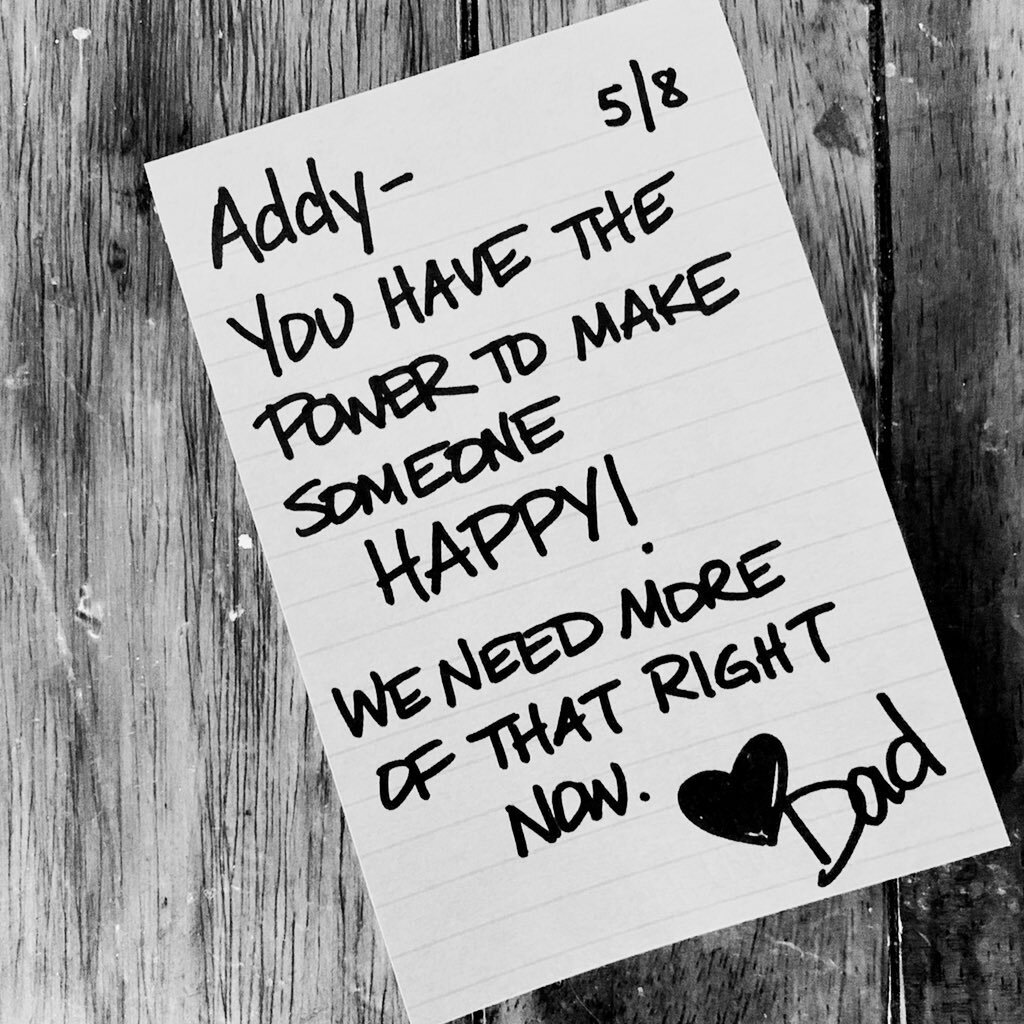 5/8
Addy-
YOU HAVE THE
POWER TO MAKE
SOMEONE
HAPPY!
WE NEED MORE
OF THAT RIGHT
NOW. ♥Dad